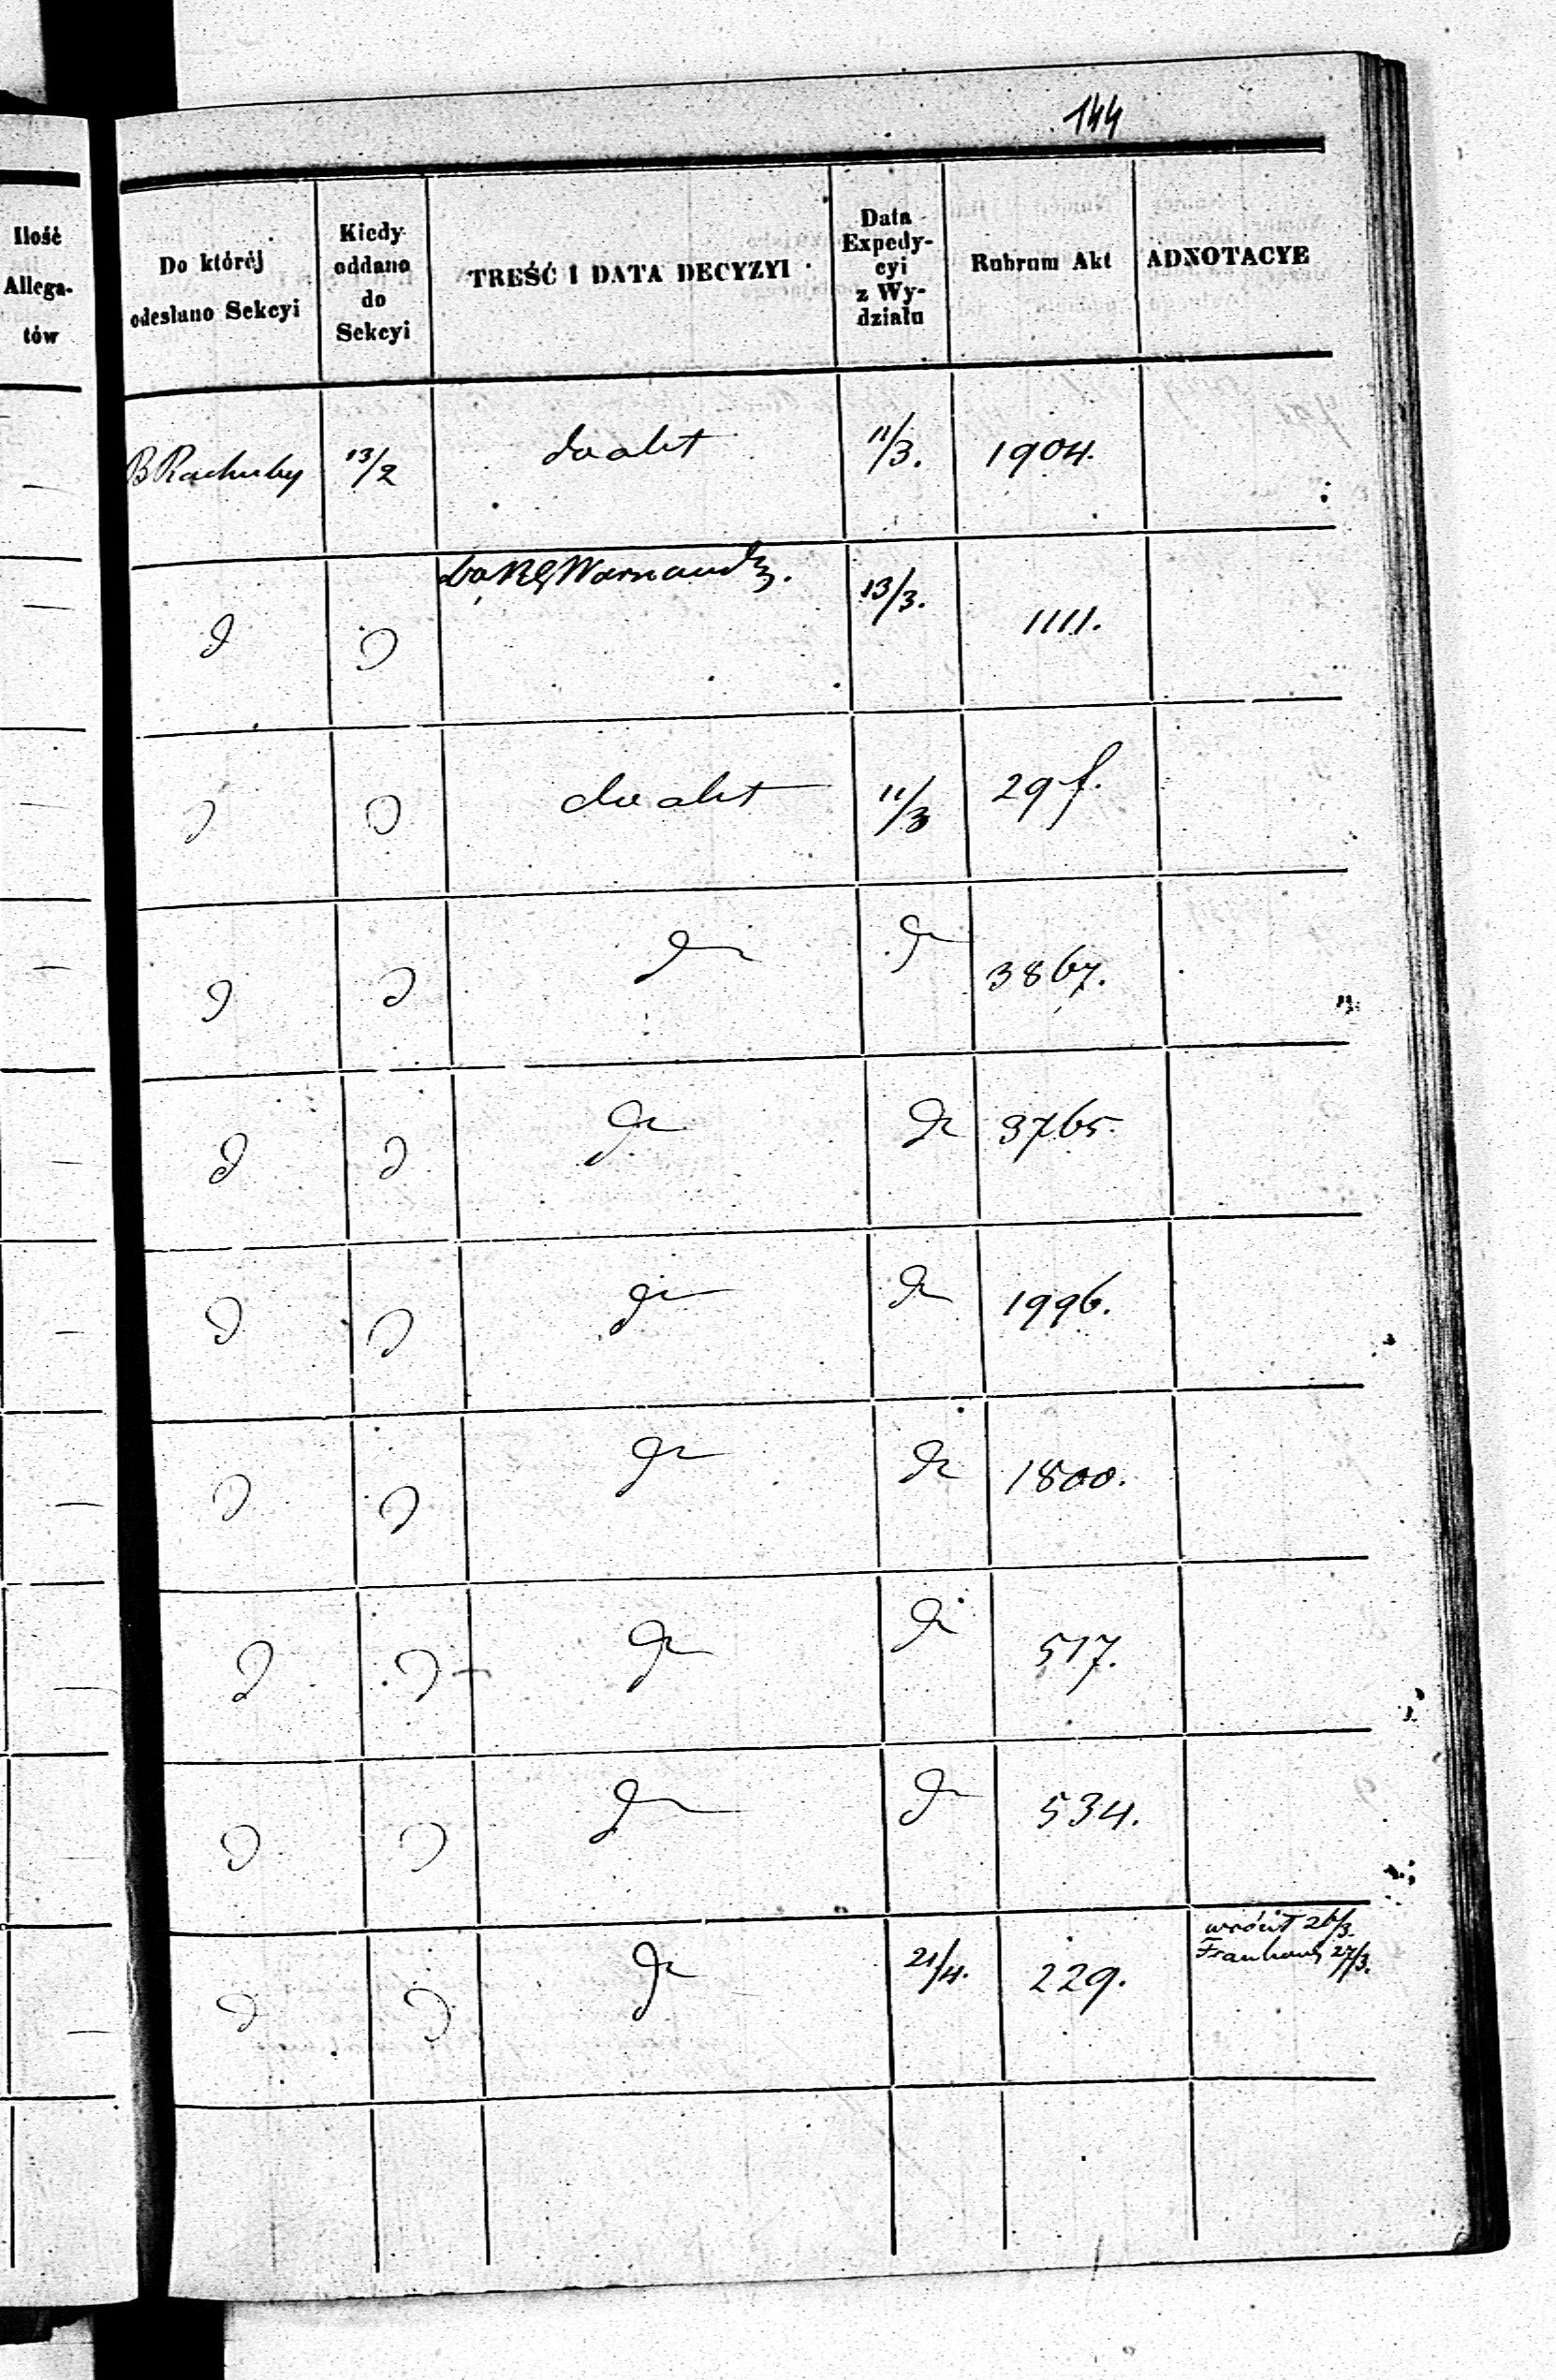 144
Ilość
Allega-
tów
Do któréj
odesłano Sekcyi
Kiedy
oddano
do
Sekcyi
TREŚĆ I DATA DECYZYI
Data
Expedy-
cyi
z Wy-
działu
Rubrum Akt
ADNOTACYE
B Rachuby 13/2 do akt 11/3. 1904.
do RG Warszawsk.
D D 13/3. 1111.
D D do akt 11/3 29 f.
D D Do Do 3867.
D D Do Do 3765.
D D Do Do 1996.
D D Do Do 1800.
D D Do Do 517.
D D Do Do 534.
wrócił 26/3.
27/3.
D D Do 21/4. 229.